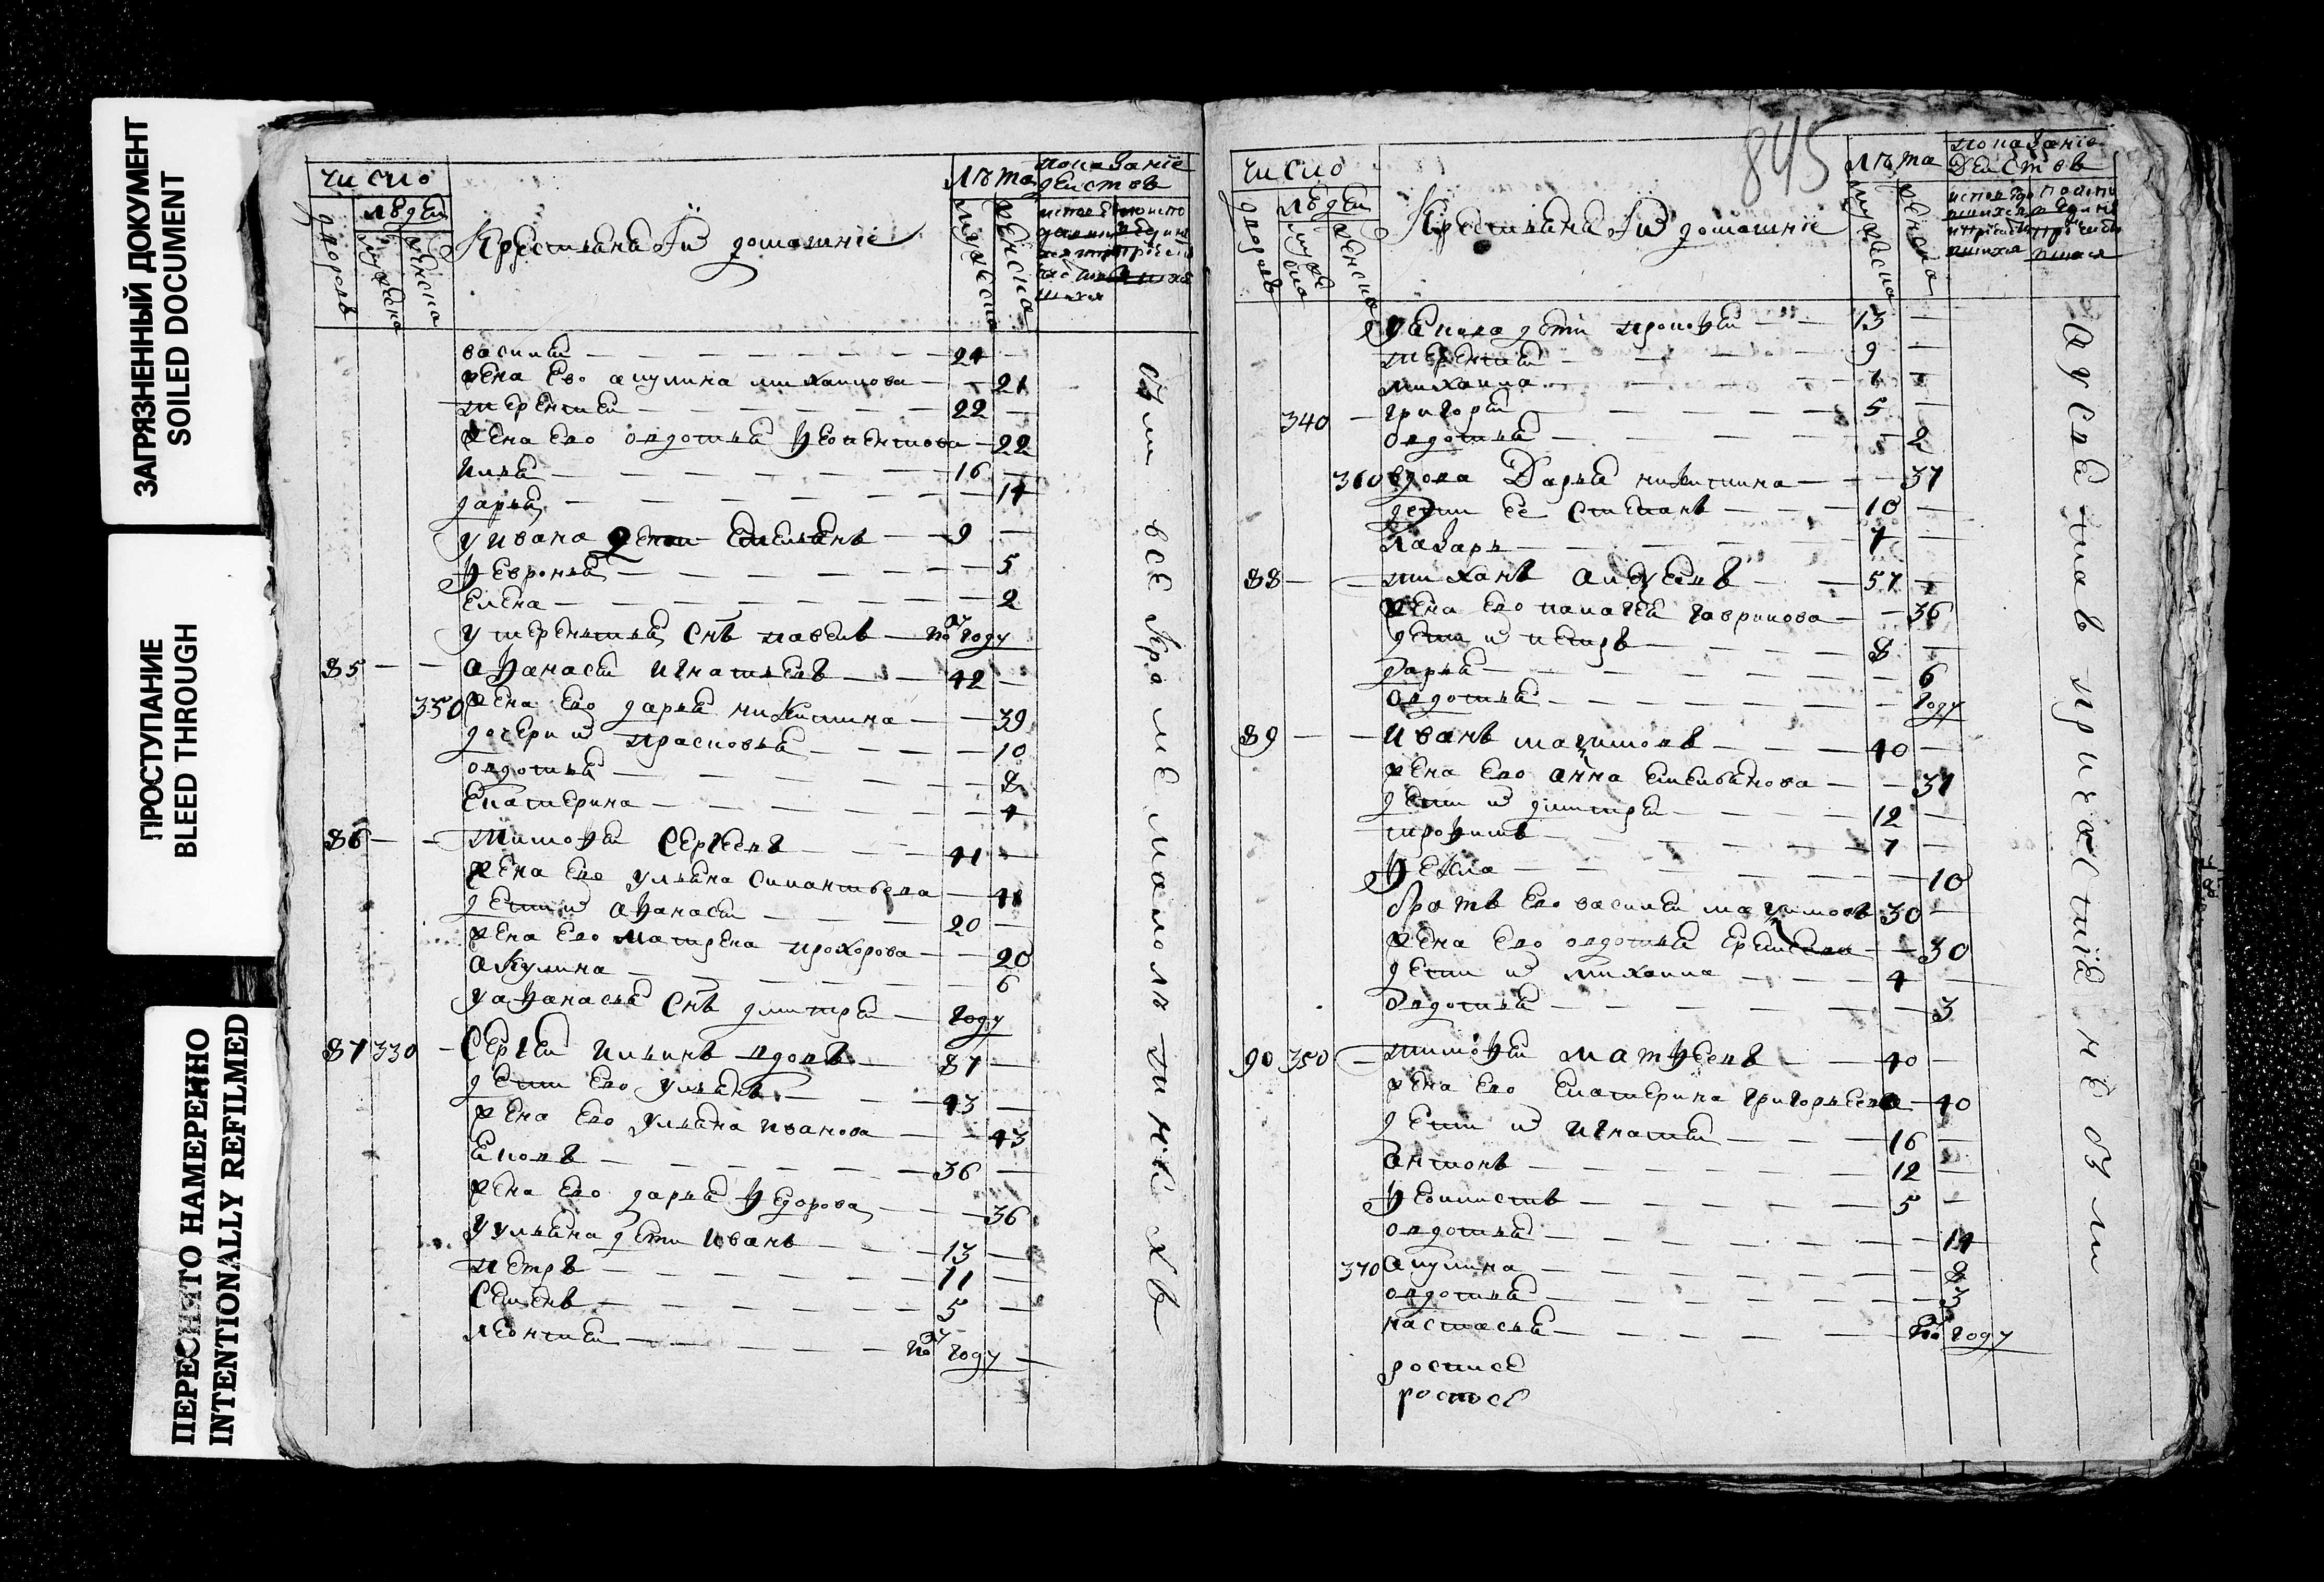 ЗАГРЯЗНЕННЫЙ ДОКУМЕНТ
SOILED DOCUMENT
ПРОСТУПАНИЕ
BLEED THROUGH
ПЕРЕСНЯТО НАМЕРЕННО
INTENTIONALLY REFILMED
число
людей
дворовъ
мужеска
женска
Крестьяна и их домашние
лѣта
мужеска
женска
показание
действ
василей — 24 —
жена ево акулина михаилова — — 21
терентей — 22 —
жена ево овдотья — 22
илья — 16 —
дарья — — 14
у ивана дети емельянъ — 9 —
февронья — — 5
елена — — 2
у терентья снъ павелъ — по году
85 — — афанасей игнатьевъ — 42 —
350 жена ево дарья никитина — — 39
дочери их прасковья — — 10
овдотья — — 8
екатерина — — 4
86 — — тимофей сергеевъ — 41 —
жена ево ульяна — 41
дети их афанасей — 20 —
жена ево матрена прохорова — — 20
акулина — — 6
у афанасья снъ дмитрей — году
87 330 — сергей ильинъ вдовъ — 87 —
дети ево ульянъ — 43 —
жена ево ульяна иванова — — 43
яковъ — 36 —
жена ево дарья федорова — — 36
у ульяна дети иванъ — 13 —
петръ — 11 —
семенъ — 5 —
леонтей — по году —
все кроме малолѣтних
845
число
людей
дворовъ
мужеска
женска
Крестьяна и их домашние
лѣта
мужеска
женска
показание
действ
у якова дети прокофей — 13 —
терентей — 9 —
михаила — 7 —
340 — григорей — 5 —
овдотья — — 2
360 вдова Дарья никитина — — 37
дети ее степанъ — 10 —
лазарь — 7 —
88 — — 57 —
жена ево палагея гаврилова — — 36
дети их петръ — 8 —
дарья — — 6
овдотья — — году
89 — — иванъ — 40 —
жена ево анна емельянова — — 37
дети их дмитрей — 12 —
трофимъ — 7 —
фекла — — 10
братъ ево василей — 30 —
жена ево овдотья — 30
дети их михаила — 4 —
овдотья — — 3
90 350 — тимофей матфеевъ — 40 —
жена ево екатерина григорьева — 40
дети их игнатей — 16 —
антонъ — 12 —
феоктистъ — 5 —
овдотья — — 14
370 акулина — — 8
овдотья — — 3
настасья — по году